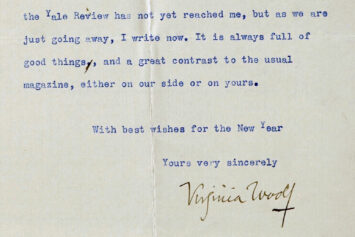 the Yale Review has not yet reached me, but as we are
just going away, I write now. It is always full of
good things, and a great contrast to the usual
magazine, either on our side or on yours.
With best wishes for the New Year
Yours very sincerely
Virginia Woolf